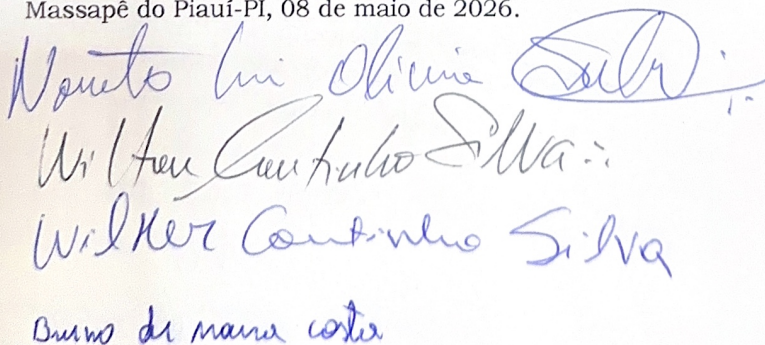 Massapê do Piauí-PI, 08 de maio de 2026.
Oliveira Silva
Wilton Coutinho Silva
Wilker Coutinho Silva
Bruno de moura costa